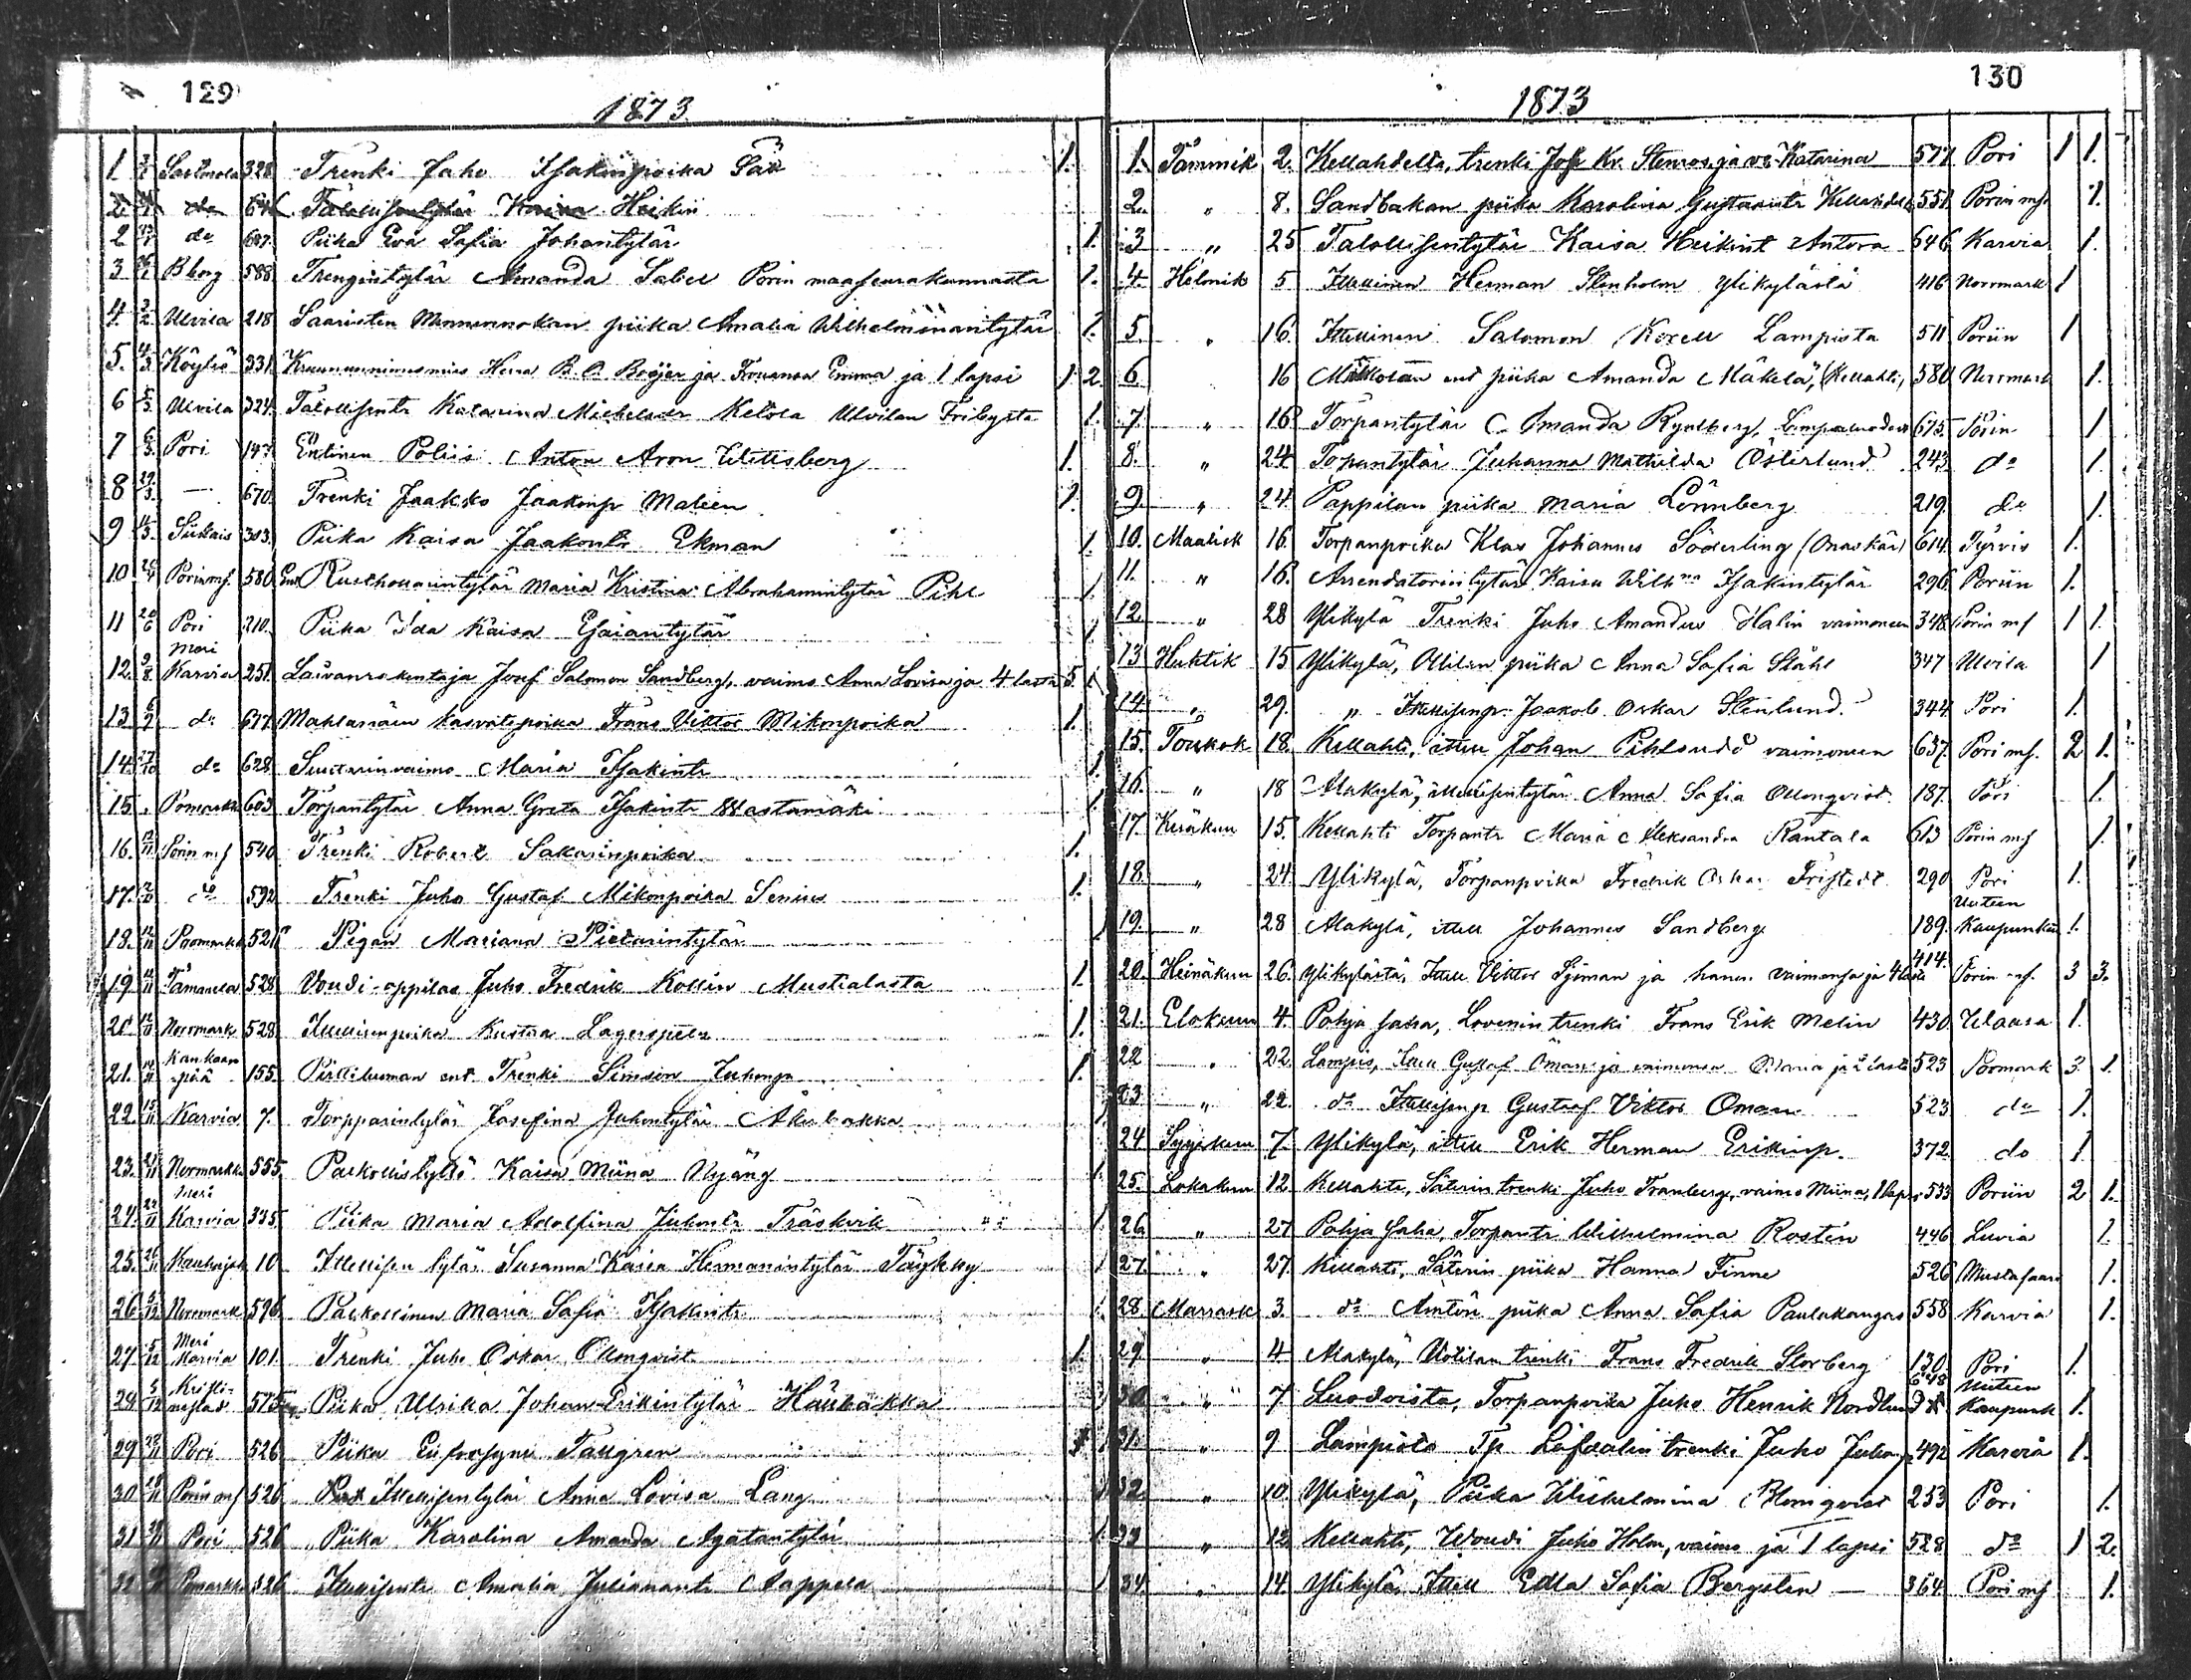 129
1873
1. 3/1 Sastmola 328 Trenki Juho Isakinpoika Säk 1.
2. do 646 Talollisentytär Kaisa Heikin
2 do 647. Piika Eva Sofia Johantytär 1.
3. Bborg 588 Trengintytär Amanda Sabel Porin maaseurakunnasta 1.
4. 3/2 Ulvila 218 Saaristen piika Amalia Wilhelmiinantytär 1.
5. 4/3 Köyliö 331. Kruununnimismies Herra B. O. Boijer ja Frouansa Emma ja 1 lapsi 1 2
6 5/3 Ulvila 324. Talollisentr Katarina Mickelsdr Ketola Ulvilan Fribysta 1.
7 6/3 Pori 147. Entinen Poliis Anton Aron Wettsberg 1.
8 29/3 — 670. Trenki Jaakko Jaakonp Malen 1.
9 Siikais 303. Piika Kaisa Jaakontr Ekman 1.
10 Porinmsk. 580 Ent Rusthollarintytär Maria Kristina Abrahamintytär Pihl 1.
11 20/6 Pori 210. Piika Ida Kaisa Esaiantytär 1
12. 9/8 Meri Karvia 251. Laivanrakentaja Josef Salomon Sandberg, vaimo Anna Lovisa ja 4 lasta 5.
13. do 677. kasvatpoika Frans Viktor Mikonpoika 1.
14. 27/10 do 628. Suutarinvaimo Maria Isakintr 1.
15 . Pomarkk 603 Torpantytär Anna Greta Isakintr Wastamäki 1.
16. Porin msk 540 Trenki Robert Sakarinpoika 1.
17. do 592 Trenki Juho Gustaf Mikonpoika Senius 1.
18. Poomarkk 526 Pigan Mariana Pietarintytär
19 Tamamela 528 Voudi-oppilas Juho Fredrik Kollin Mustialasta 1.
20 Norrmark 528. Itsellisenpoika Kustaa Lagerspets 1.
21. Kankaanpää 155. ent. Trenki Simson Juhonp 1.
22. 15/11 Karvia 7. Torpparintytär Josefina Juhontytär Åkerbakka
23. Normarkk 555. Palkollistyttö Kaisa Miina Nyäng 1
24. Meri Karvia 335. Piika Maria Adolfina Juhontr Träskvik 1
25. Kauhajok 10. Itsellisen tytär Susanna Kaisa Hermanintytär Täykky 1
26 5/12 Norrmark 596 Palkollinen Maria Sofia Isakintr 1.
27 5/12 Meri Karvia 101. Trenki Juho Oskar Ollonqvist 1.
28 5/12 Kristinestad 575 Piika Ulrika Johan Erikintytär Haubakka 1
29 Pori 526 Piika Eufrosyne Tallgren
30 Porin msk 526 Itsellisentytär Anna Lovisa Lang
31 Pori 526 Piika Karolina Amanda Agatantytär 1.
32 Pomarkk 526 Itsellisentr Amalia Julianantr 1
130
1873
1. Tammik 2. Kellahdelta, trenki Jos Kr. Stenros ja vo Katarina 577 Pori 1 1.
2. „ 8. Sandbakan piika Karolina Gustavintr Kellahdelta 551. Porin msk 1.
3 „ 25 Talollisentytär Kaisa Heikint Antora 646 Karvia 1.
4. Helmik 5 Itsellinen Herman Stenholm Ylikylästä 416 Norrmark 1
5. „ 16. Itsellinen Salomon Korell Lampista 511 Poriin 1
6 16 ent piika Amanda Mäkelä, (Kellahti) 580 Norrmark 1.
7. „ 16 Torpantytär Amanda Rynberg, 675. Porin 1
8. „ 24. Topantytär Juhanna Mathilda Österlund 243. do 1.
9. „ 24. Pappilan piika Maria Lönnberg 219. do 1.
10. Maalisk 16. Torpanpoika Klas Johannes Söderling 614. Tyrvis 1.
11. „ 16. Arrendatorintytär Kaisa Wilhna Isakintytär 296. Poriin 1.
12. „ 28 Ylikylä Trenki Juho Amandus Malin vaimoneen 348. Porin msk 1 1.
13 Huhtik 15 Ylikylä, Ollilan piika Anna Sofia Ståhl 347 Ulvila 1
14. „ 29. „ Itsellisenp. Jaakob Oskar Stenlund 344. Pori 1.
15. Toukok 18. Kellahti, itsell Johan Pihlsund vaimoneen 637. Pori msk. 2 1.
16. „ 18 Alakylä, itsellisentytär Anna Sofia Ollonqvist 187. Pori 1.
17. Kesäkuu 15. Kellahti Torpantr Maria Aleksandra Rantala 613 Porin msk 1.
18. „ 24. Ylikylä, Torpanpoika Fredrik Oskar Fristedt 290 Pori 1.
19. „ 28 Alakylä, itsell Johannes Sandberg 189. Uuteen Kaupunkiin 1.
20. Heinäkuu 26. Ylikylästä, Itsell Viktor Sjöman ja hänen vaimonsa ja 4 lasta 414. Porin msk. 3 3.
21. Elokuun 4. Pohja saha, Lovenin trenki Frans Erik Melin 430. Waasa 1.
22 „ 22. Lampis, Itsell Gustaf Öman ja vaimonsa Maria ja 2 lasta 523 Pormark 3. 1.
23 „ 22. do Itsellisenp Gustaf Viktor Öman 523 do 1.
24 Syyskuu 7. Ylikylä, itsell Erik Herman Erikinp. 372 do 1.
25. Lokakuu 12 Kellahti, Säterin trenki Juho Tranberg, vaimo Miina, 1 lapsi 533 Poriin 2 1.
26. „ 27 Pohja saha, Torpantr Wilhelmina Rostén 446 Luvia 1.
27. „ 27. Kellahti, Säterin piika Hanna Finne 526 Mustasaari 1.
28. Marrask 3. do Antön piika Anna Sofia Paulakangas 558 Karvia 1.
29. „ 4. Alakylä, trenki Frans Fredrik Storberg 130. Pori 1.
30 „ 7. Luodoista, Torpanpoika Juho Henrik Nordlund 648 Uuteen Kaupunk 1.
31. „ 9 Lampista trenki Juho Juhonp 492 Karvia 1.
32. „ 10. Ylikylä, Piika Wilhelmina Blomqvist 253 Pori 1.
33 „ 12. Kellahti, Woudi Juho Holm, vaimo ja 1 lapsi 528 do 1 2.
34. „ 14. Ylikylä, Itsell Edla Sofia Bergsten — 364. Pori msk 1.